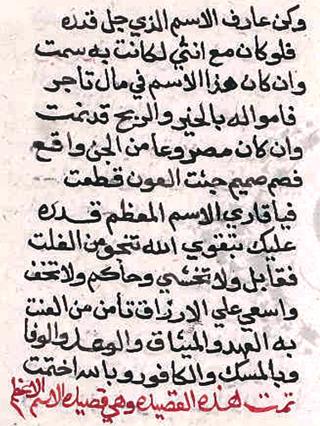 وكن عارف الاسم الذي جل قدره
فلوكان مع انثي لكانت به سمت
وان كان هذا الاسم في مال تاجر
فامواله بالخير والربح قد نمت
وان كان مصروعا من الجن واقع
فصم صميم جيئت العون قطعت
فيا قاري الاسم المعظم قدره
عليك بتقوي الله تنجو من الفلت
فقابل ولا تخشي وحاكم ولا تخف
واسعي علي الارزاق تا من من الفنت
به العهد والميثاق والوعد والوفا
وبالمسك والكافور وبا سدا ختمت
تمت هذه القصيده وهي قصيدة الاسم الاعظم